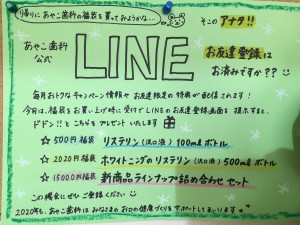 帰りにあやこ歯科の福袋を買ってみようかな…
そこのアナタ!!
あやこ歯科
公式
LINE
お友達登録は
お済みですか??
毎月おトクなキャンペーン情報や お友達限定の特典が配信されます!
今月は、福袋をお買い上げ時に受付でLINEのお友達登録画面を提示すると、
ドドン!!とこちらをプレゼントいたします
☆ 500円福袋 リステリン(洗口液) 100mlボトル
☆ 2020円福袋 ホワイトニングのリステリン(洗口液) 500mlボトル
☆ 15000円福袋 新商品ラインナップ詰め合わせセット
この機会にぜひご登録ください
2020年も、あやこ歯科はみなさまのお口の健康づくりをサポートしてまいります